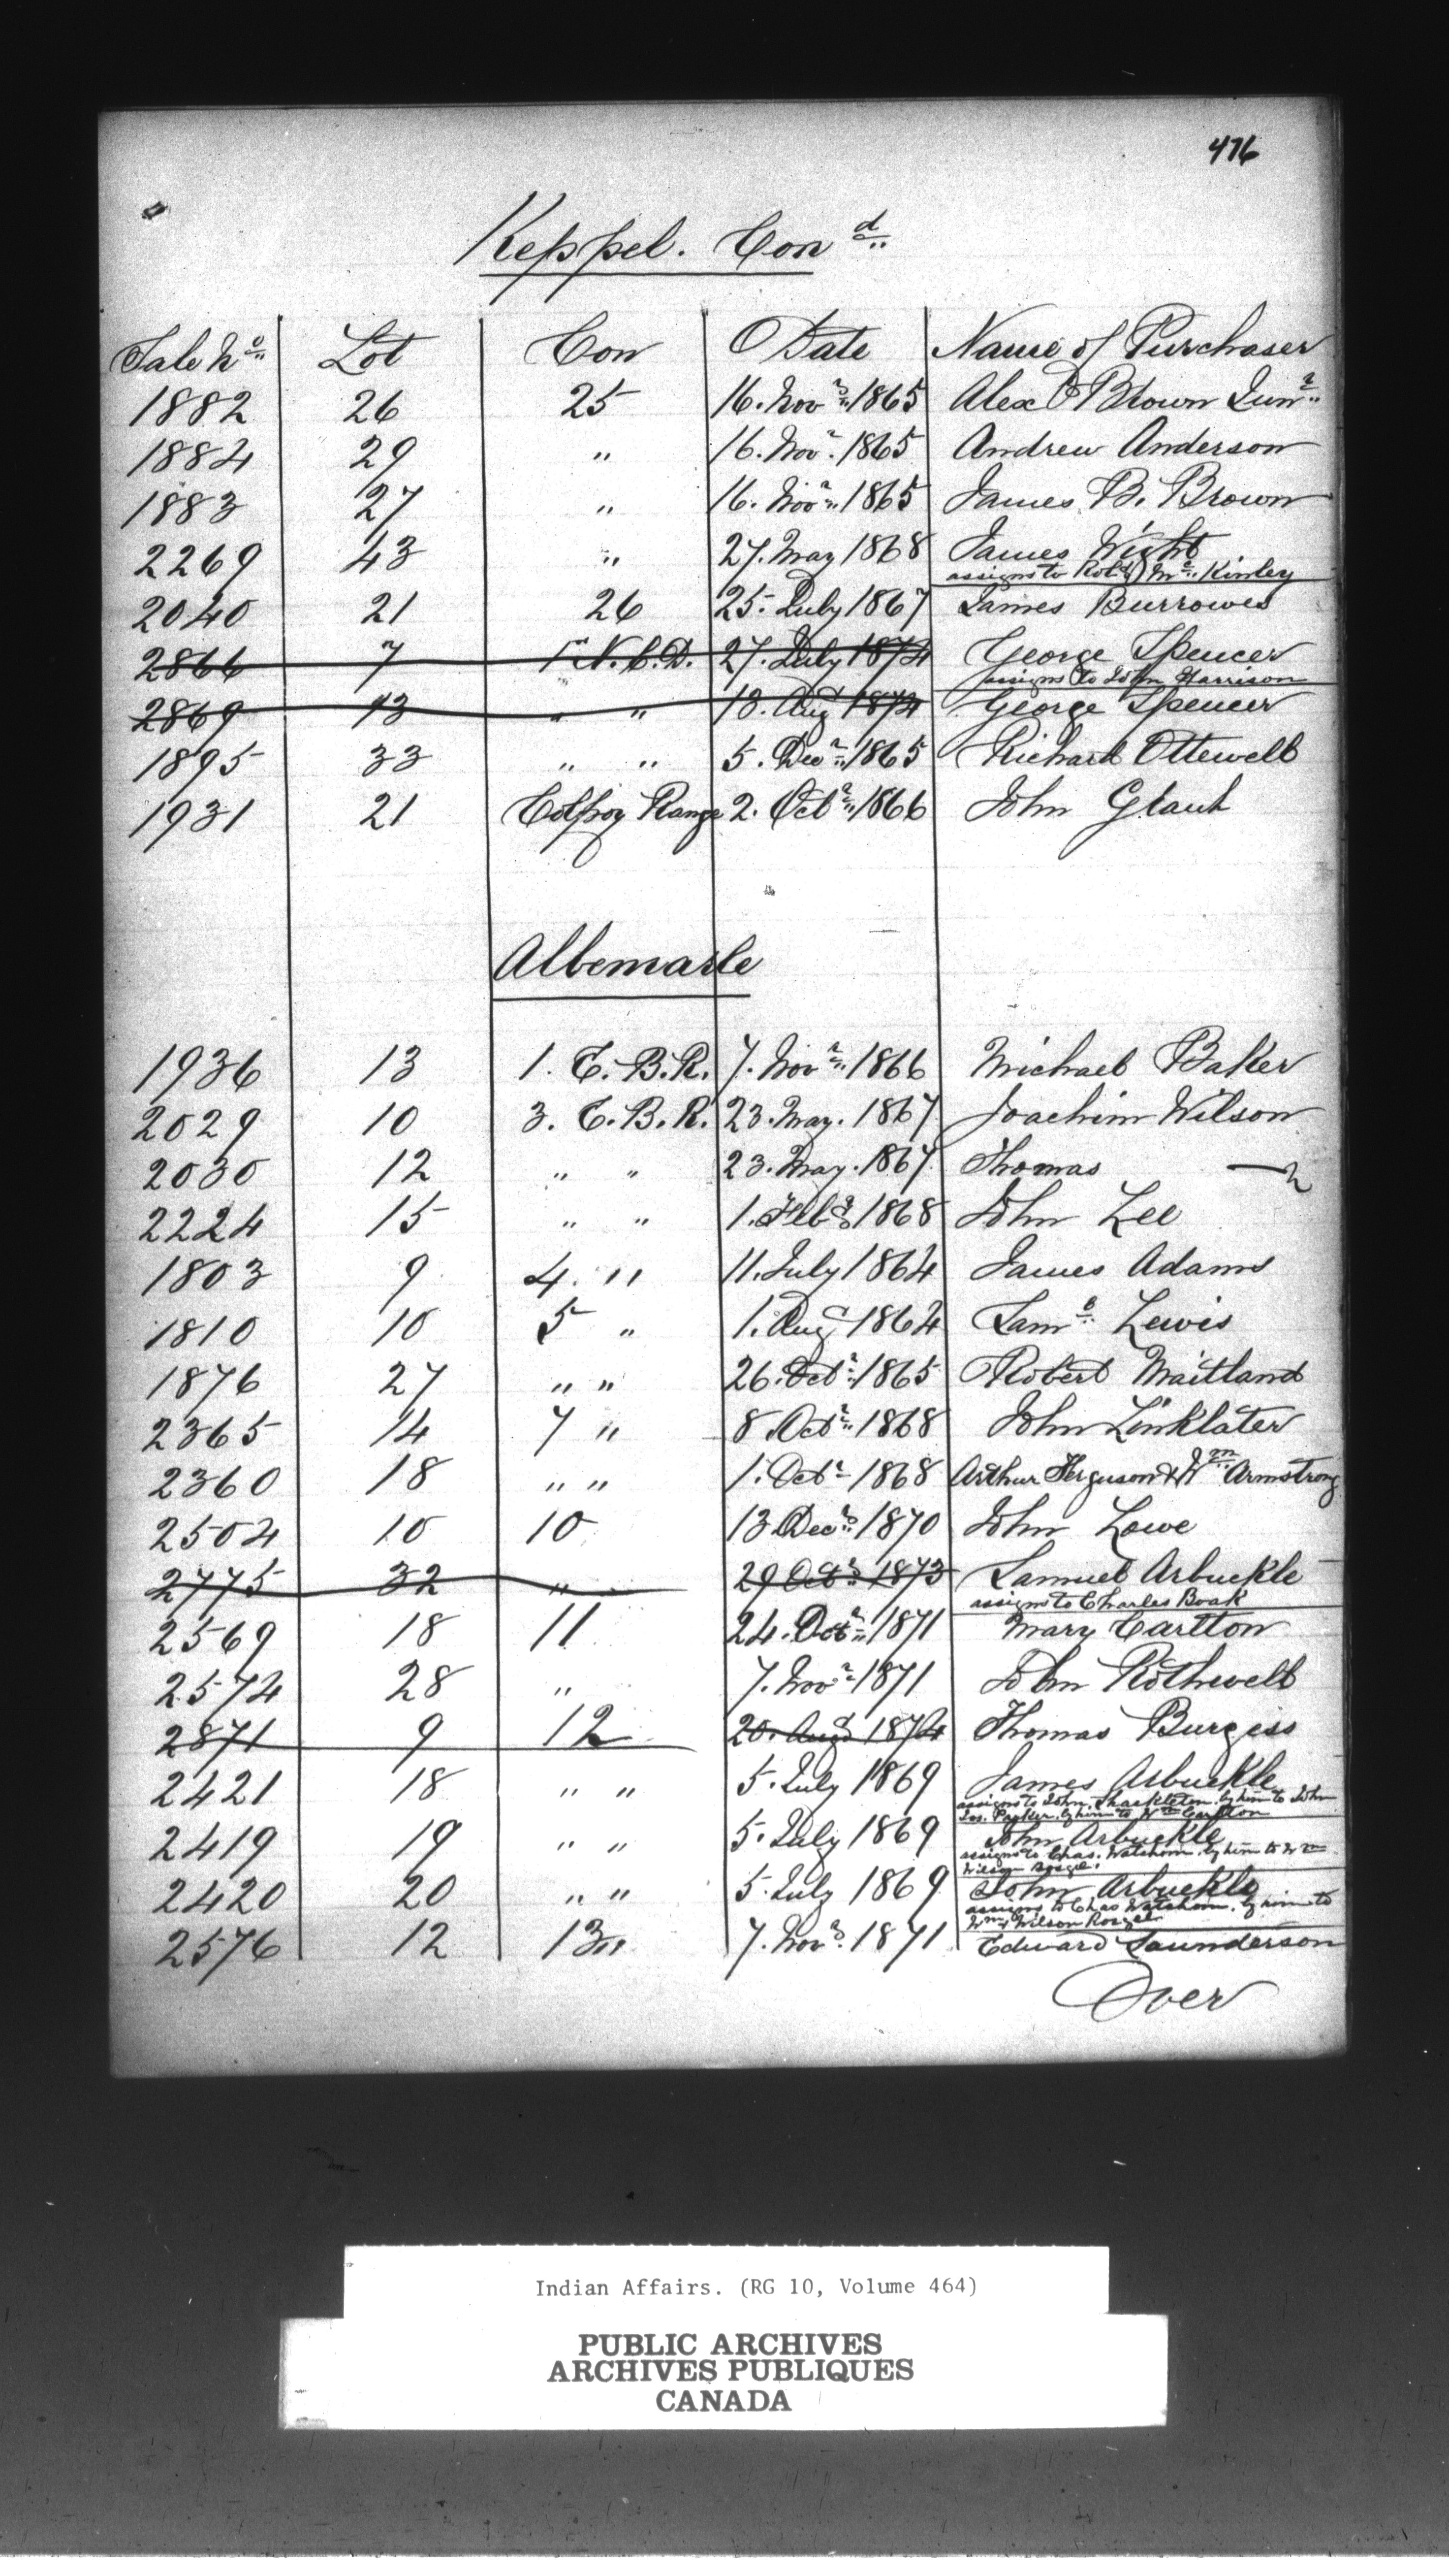 476
Keppel. Con d
Sale No Lot Con Date Name of Purchaser
1882 26 25 16. Novr. 1865 Alex Brown Junr
1884 29 " 16. Novr. 1865 Andrew Anderson
1883 27 " 16. Novr. 1865 James B. Brown
2269 43 " 27. May 1868 James Wight
assigns to Robt Mc. Kinley
2040 21 26 25. July 1867 James Burrowes
2866 7 1 N.C.D. 27. July 1874 George Spencer
assigns to John Harrison
2869 13 " " 13. Aug 1874 George Spencer
1895 33 " " 5. Decr. 1865 Richard Ottewell
1931 21 Colpoy Range 2. Octr. 1866 John
Albemarle
1936 13 1. E. B. R. 7. Novr. 1866 Michael Baker
2029 10 3. E. B. R. 23. May. 1867 Joachim Wilson
2030 12 " " 23. May. 1867 Thomas —"
2224 15 " " 1. Feby 1868 John Lee
1803 9 4. " 11. July 1864 James Adams
1810 10 5 " 1. Aug 1864 Saml. Lewis
1876 27 " " 26. Octr. 1865 Robert Maitland
2365 14 7 " 8 Octr. 1868 John Linklater
2360 18 " " 1. Octr 1868 Arthur Ferguson & Wm Armstrong
2504 10 10 13 Decr. 1870 John Lowe
2775 32 " 29 Octr. 1873 Samuel Arbuckle
assigns to Charles Boak
2569 18 11 24. Octr. 1871 Mary Carlton
2574 28 " 7. Novr. 1871 John Rothwell
2871 9 12 20. Augt 1874 Thomas Burgess
2421 18 " " 5. July 1869 James Arbuckle
assigns to John Shackleton. by him to John
Jas. Parker. by him to Wm Carlton
2419 19 " " 5. July 1869 John Arbuckle
assigns to Chas. Watshorn. by him to Wm
Wilson
2420 20 " " 5. July 1869 John Arbuckle
assigns to Chas Watshorn. by him to
Wm Wilson
2576 12 13 " 7. Novr. 1871 Edward Saunderson
Over
Indian Affairs. (RG 10, Volume 464)
PUBLIC ARCHIVES
ARCHIVES PUBLIQUES
CANADA